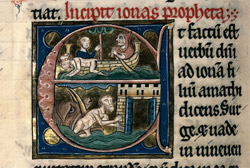 tiat. Incipit ionas propheta
t factū est
uerbū dn̄i
ad ionā fi
liū amathi
dicens. Sur
ge ⁊ uade
in niniuen